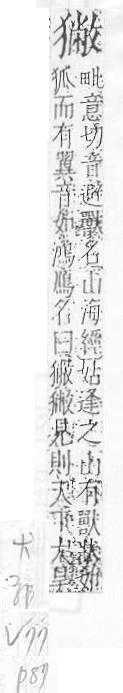 獙
毗意切音避獸名山海經姑逢之山有獸狀如
狐而有翼音如鴻鴈名曰獙獙見則天下大旱
p89